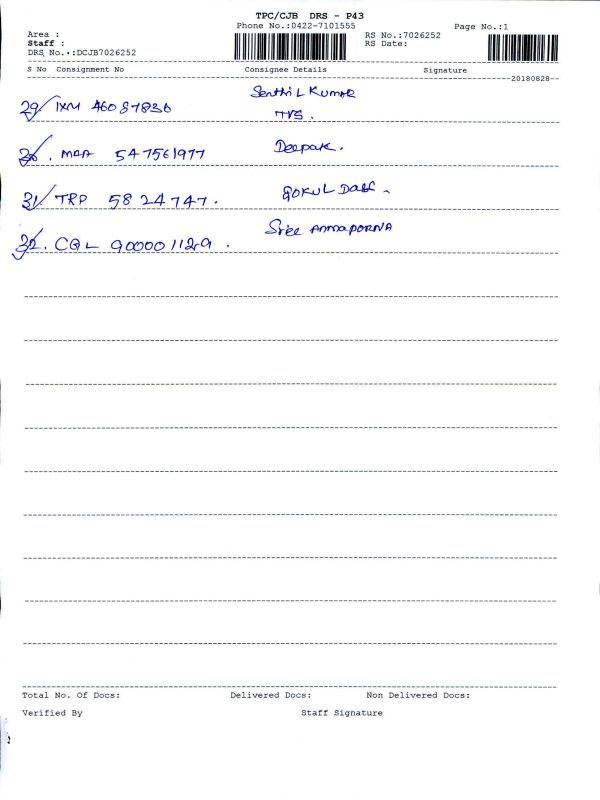 TPC/CJB DRS - P43
Phone No.:0422-7101555
Page No.:1
Area :
RS No.:7026252
Staff :
RS Date:
DRS No.:DCJB7026252
S No Consignment No Consignee Details Signature
20180828
29 IXM 460 87836 Senthil Kumar
TVS.
30. MAA 547561977 Deepak.
31 TRP 5824747. GOKUL Dass.
32. CQL 900001129. Sree ANNAPORNA
Total No. Of Docs: Delivered Docs: Non Delivered Docs:
Verified By Staff Signature